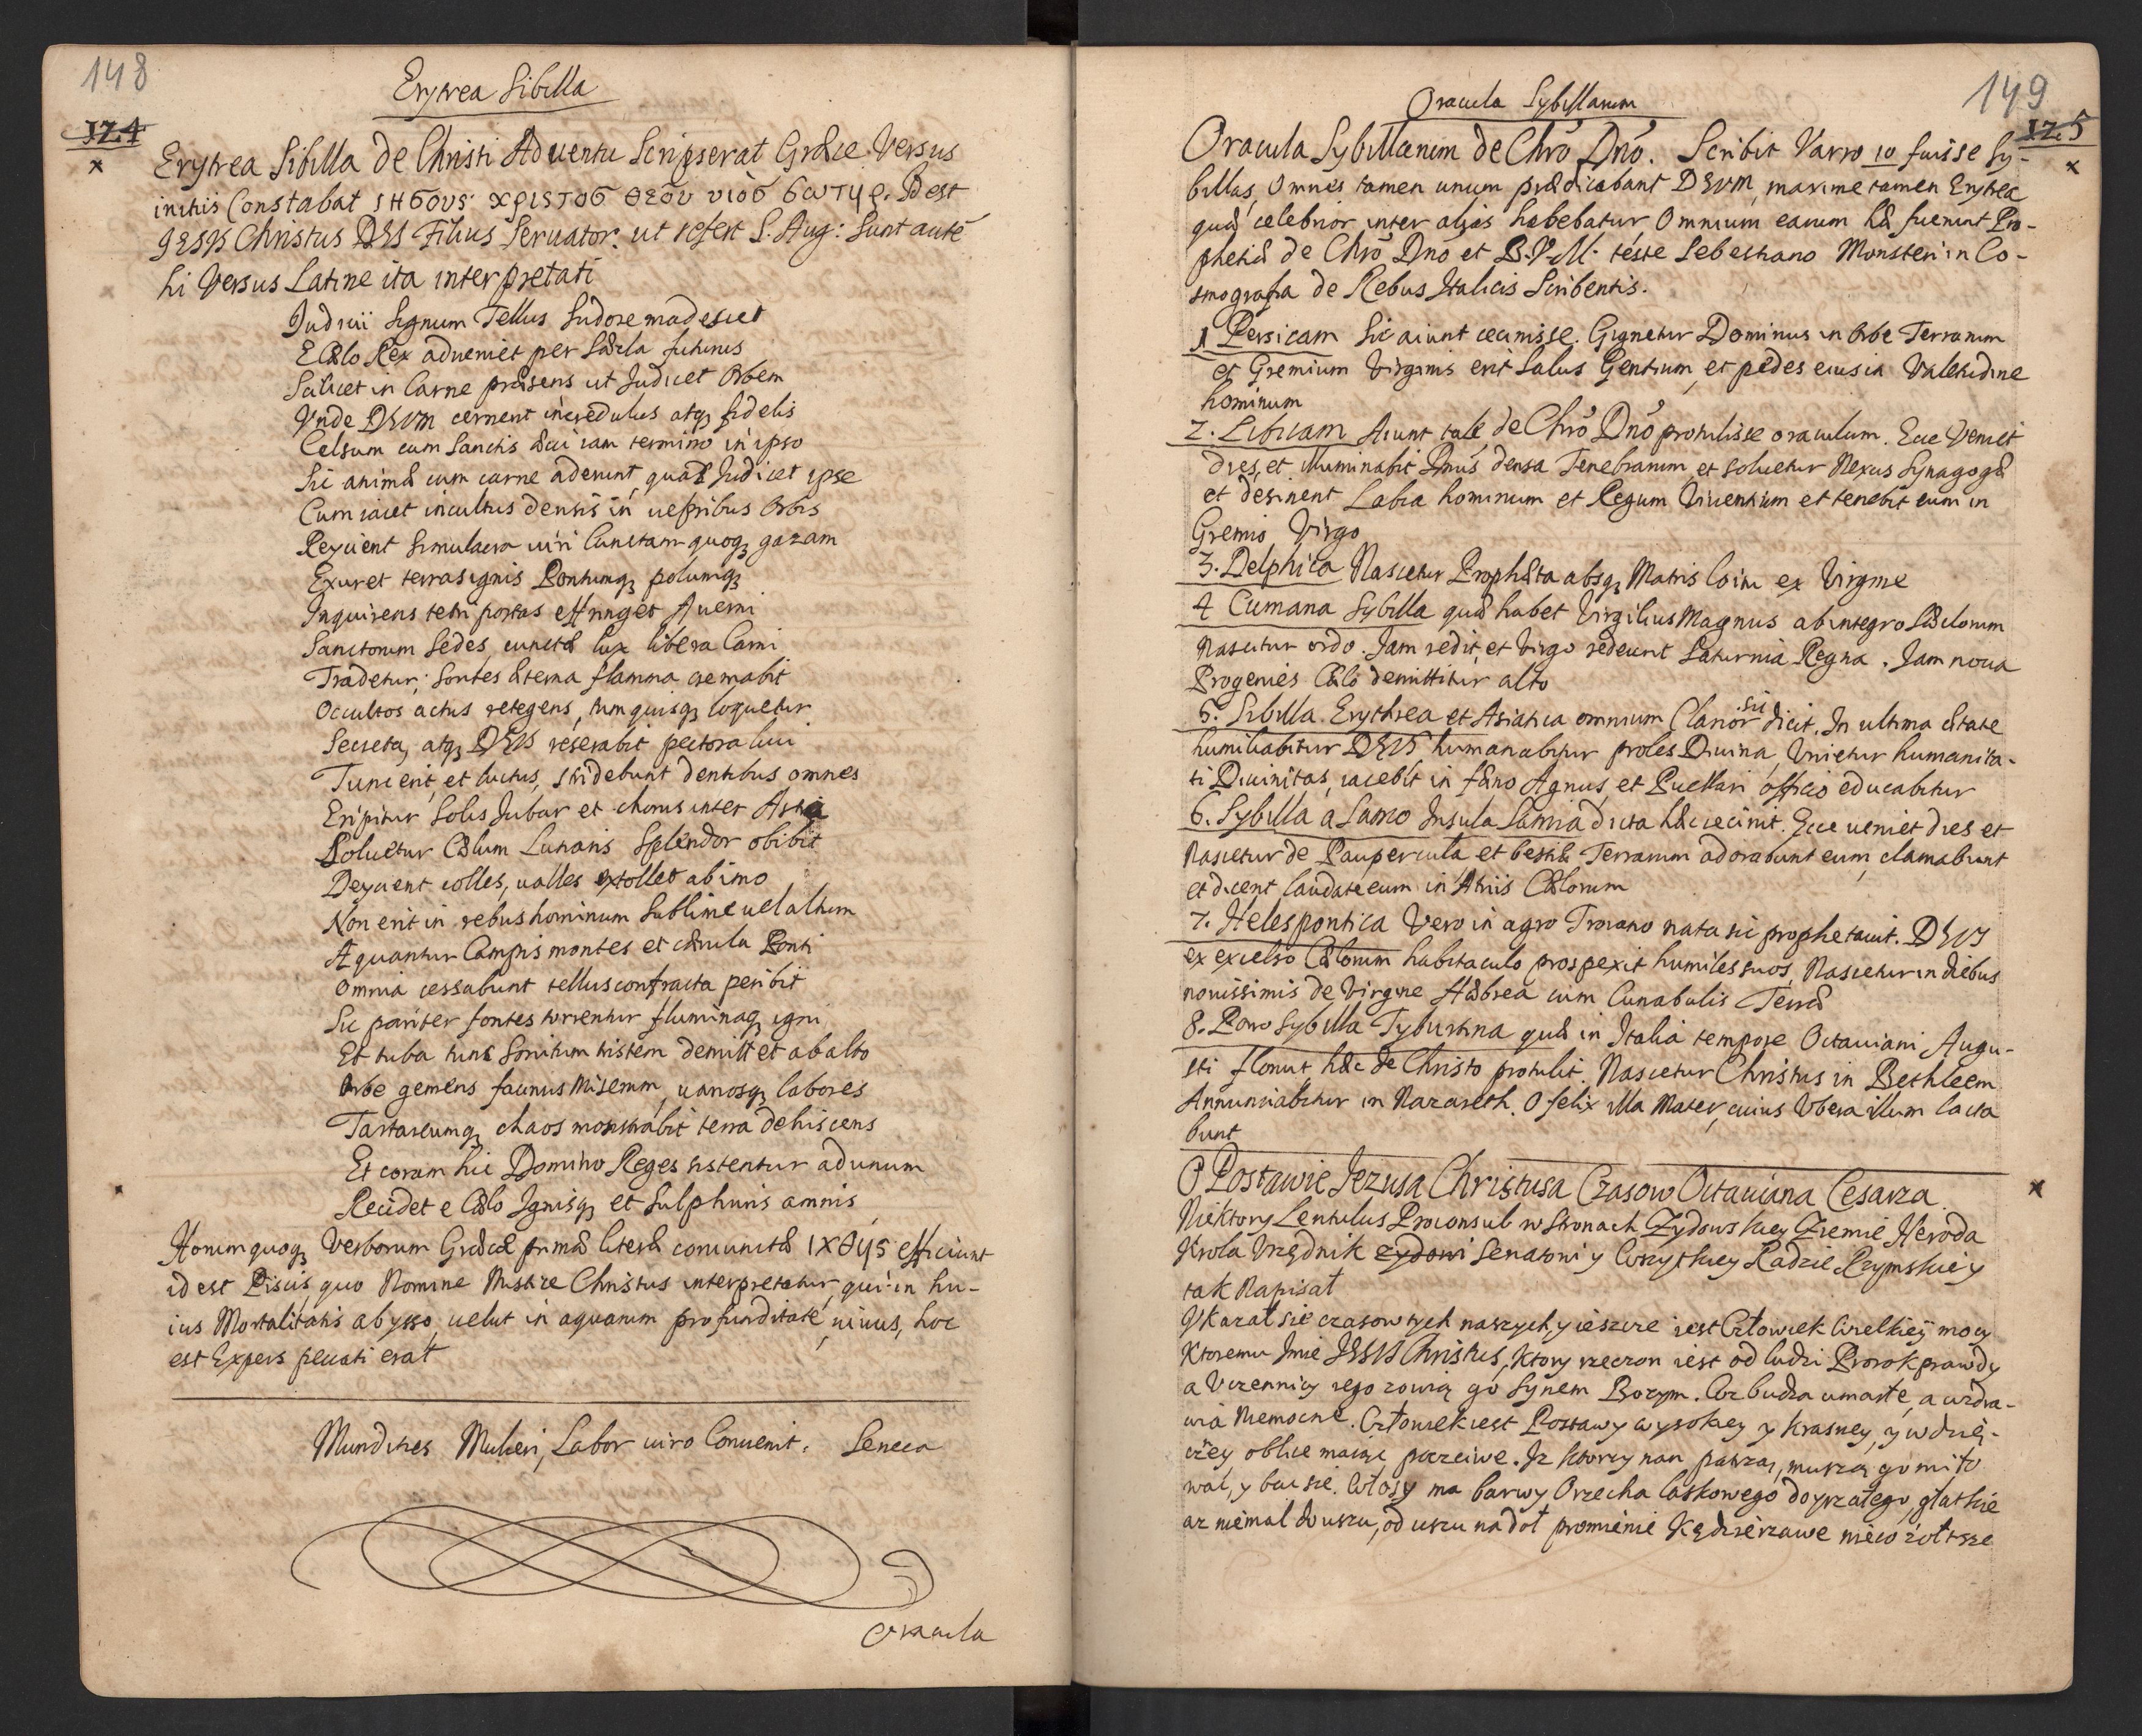 148
Erytrea Sibilla
124
x
Erytrea Sibilla de Christi Adventu Scripserat Græce Versus
initiis Constabat ιησους χριστοσ θεου υιοσ σωτηρ. Id est
JESUS Christus DEI Filius Servator. ut refert S. Aug: Sunt autē
hi Versus Latine ita interpretati
Judicii signum Tellus Sudore madescet
E Cælo Rex adveniet per Sæcla futurus
Scilicet in Carne præsens ut Judicet Orbem
Unde DEUM cernent incredulus atq fidelis
Celsum cum Sanctis ævi iam termino in ipso
Sic animæ cum carne aderunt, quas Judicet ipse
Cum iacet incultus densis in uepribus Orbis
Reyicient simulacra uiri Cunctam quoq gazam
Exuret terras ignis Pontumq polumq
Inquirens tetri portas effringet Averni
Sanctorum sedes cunctæ lux libera Carni
Tradetur; sontes æterna flamma cremabit
Occultos actus retegens, tum quisq loquetur
Secreta, atq DEUS reserabit pectora luci
Tunc erit et luctus, stridebunt dentibus omnes
Eripitur Solis Jubar et chorus inter Astra
Soluetur Cælum Lunaris Splendor obibit
Deyicient colles, ualles extollet ab imo
Non erit in rebus hominum Sublime uel altum
Æquantur Campis montes et cærula Ponti
Omnia cessabunt tellus confracta peribit
Sic pariter fontes torrentur fluminaq igni
Et tuba tunc Sonitum tristem demittet ab alto
Orbe gemens facinus miserum, uariosq labores
Tartareumq chaos monstrabit terra dehiscens
Et coram hic Domino Reges sistentur ad unum
Recidet e Cælo Ignisq et Sulphuris amnis
Horum quoq Verborum Græcæ primæ literæ coniunctæ ιχθυς efficiunt
id est Piscis, quo Nomine Mistice Christus interpretatur, qui in hu-
ius Mortalitatis abysso, uelut in aquarum profunditate, uiuus, hoc
est Expers peccati erat
Mundities Mulieri, Labor uiro Conuenit. Seneca
Oracula
149
Oracula Sybillarum
125
x
Oracula Sybillarum de Chrō Dnō. Scribit Varro 10 fuisse Sy-
billas, Omnes tamen unum prædicabant DEUM, maxime tamen Erytrea
quæ celebrior inter alias habebatur, Omnium earum hæ fuerunt Pro-
phetiæ de Chrō Dnō et B.V.M. teste Sebestiano Monsteri in Co-
smografia de Rebus Italicis Scribentis.
1 Persicam Sic aiunt cecinisse. Gignetur Dominus in Orbe Terrarum
et Gremium Virginis erit Salus Gentium, et pedes eius in Valetudine
hominum
2. Libicam Aiunt tale de Chrō Dnō protulisse oraculum. Ecce Veniet
dies, et illuminabit Dnūs densa Tenebrarum, et soluetur Nexus Synagogæ
et desinent Labia hominum et Regum Viuentium et tenebit eum in
Gremio Virgo
3. Delphica Nascetur Prophæta absq Matris Coitu ex Virgine
4 Cumana Sybilla quæ habet Virgilius Magnus ab integro Sæclorum
Nascitur ordo. Jam redit et Virgo redeunt Saturnia Regna. Jam noua
Progenies Cælo demittitur alto
5. Sibilla Erythrea et Asiatica omnium Clarior sic dicit. In ultima ætate
humiliabitur DEUS humanabitur proles Diuina, Unietur humanita-
ti Diuinitas, iacebit in fæno Agnus, et Puellari officio educabitur
6. Sybilla a Samo Insula Samia dicta hæc cecinit. Ecce ueniet dies et
Nascetur de Paupercula et bestiæ Terrarum adorabunt eum, clamabunt
et dicent laudate eum in Atriis Cælorum
7. Helespontica Vero in agro Troiano nata sic prophetauit. DEUS
ex excelso Cælorum habitaculo prospexit humiles suos, Nascetur in diebus
nouissimis de Virgine Hæbrea cum Cunabulis Terræ
8. Porro Sybilla Tyburtina quæ in Italia tempore Octauiani Augu-
sti floruit hæc de Christo protulit. Nascetur Christus in Bethleem
Annunciabitur in Nazareth. O felix illa Mater, cuius Ubera illum lacta
bunt
O Postawie Jezusa Christusa Czasow Octauiana Cesarza
x
Niektory Lentulus Proconsul w Stronach Zydowskiey Ziemie Heroda
Krola Vrzędnik zydowi Senatowi y wszytkiey Radzie Rzymskiey
tak Napisał
Ukazał sie czasow tych naszych, y ieszcze iest Człowiek wielkiey mocy
Ktoremu Imie JESUS Christus, Ktory rzeczon iest od ludzi Prorok prawdy
a Uczennicy iego zowią go Synem Bozym. Wzbudza umarłe, a uzdra-
wia Niemocne. Człowiek iest Postawy wysokiey y krasney, y wdzię-
czey oblice maiąc poczciwe. Iz ktorzy nan patrzą, muszą go miło
wać, y bać sie. Włosy ma barwy Orzecha laskowego doyrzałego, głatkie
az niemal do uszu, od uszu na doł promienie Kędzierzawe nieco żołtsze